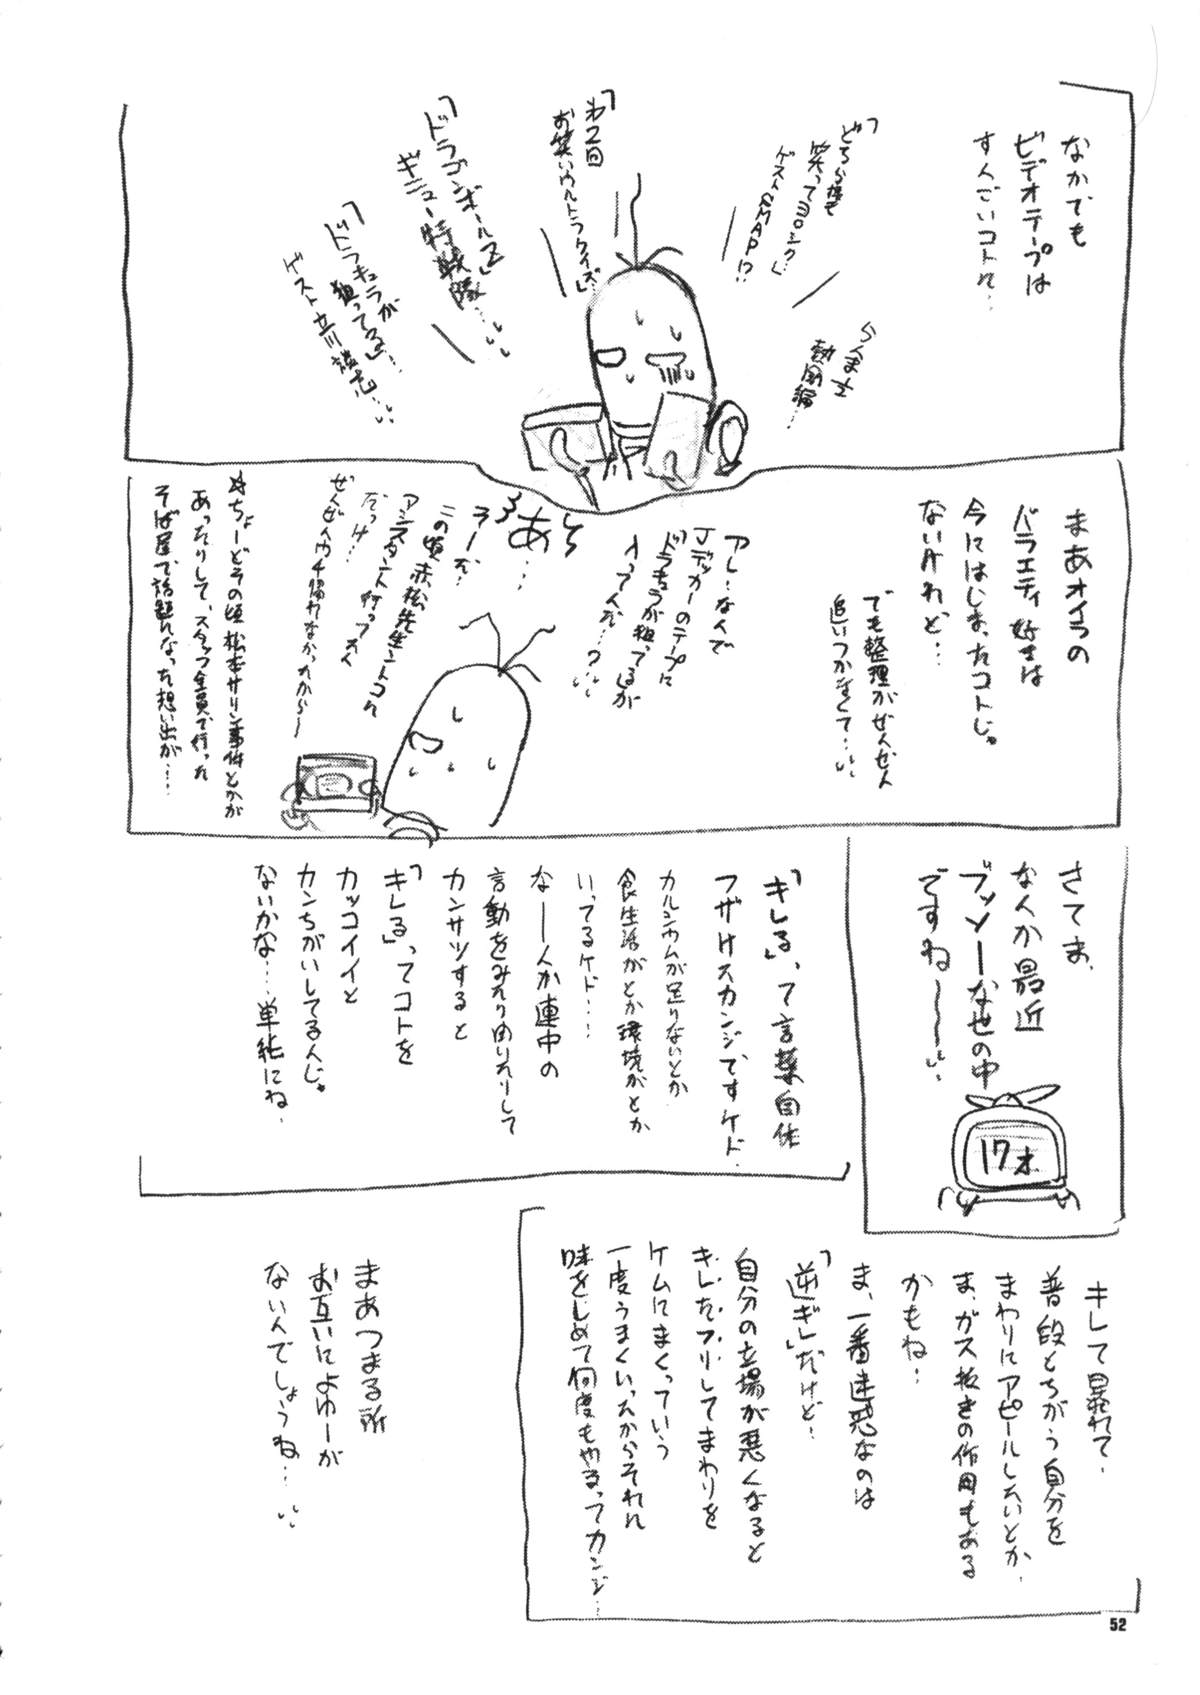 なかでも
ビデオテープは
すんごいコトに…
「どちら様も
笑ってヨロシク」…
ゲストSMAP!?
らんま½
熱闘編…
「第2回
お笑いウルトラクイズ」…
「ドラゴンボールZ」
ギニュー特戦隊…
「ドラキュラが
狙ってる」…
ゲスト立川談志…
まあオイラの
バラエティ好きは
今にはじまったコトじゃ
ないけれど…
でも整理がぜんぜん
追いつかなくて…
アレ…なんで
Jデッカーのテープに
「ドラキュラが狙ってる」が
入ってんだ…?
あそっ
…
うーむ…
この頃赤松先生ントコに
アシスタント行ってて
だっけ…
ぜんぜんウチ帰れなかったから〜
ちょーどその頃松本サリン事件とかが
あったりして、スタッフ全員で行った
そば屋で話題になった想い出が…
さてま、
なんか最近
ブッソーな世の中
ですね〜〜
17才
「キレる」って言葉自体
フザけたカンジですケド
カルシウムが足りないとか
食生活がとか環境がとか
いってるケド…
なーんか連中の
言動をみたりゆりたりして
カンサツすると
「キレる」ってコトを
カッコイイと
カンちがいしてるんじゃ
ないかな…単純にね
キレて暴れて
普段とちがう自分を
まわりにアピールしたいとか
ま、ガス抜きの作用もある
かもね…
ま、一番迷惑なのは
「逆ギレ」だけど…
自分の立場が悪くなると
キレたフリしてまわりを
ケムにまくっていう
一度うまくいったからそれに
味をしめて何度もやるってカンジ…
まあつまる所
お互いによゆーが
ないんでしょうね…
52